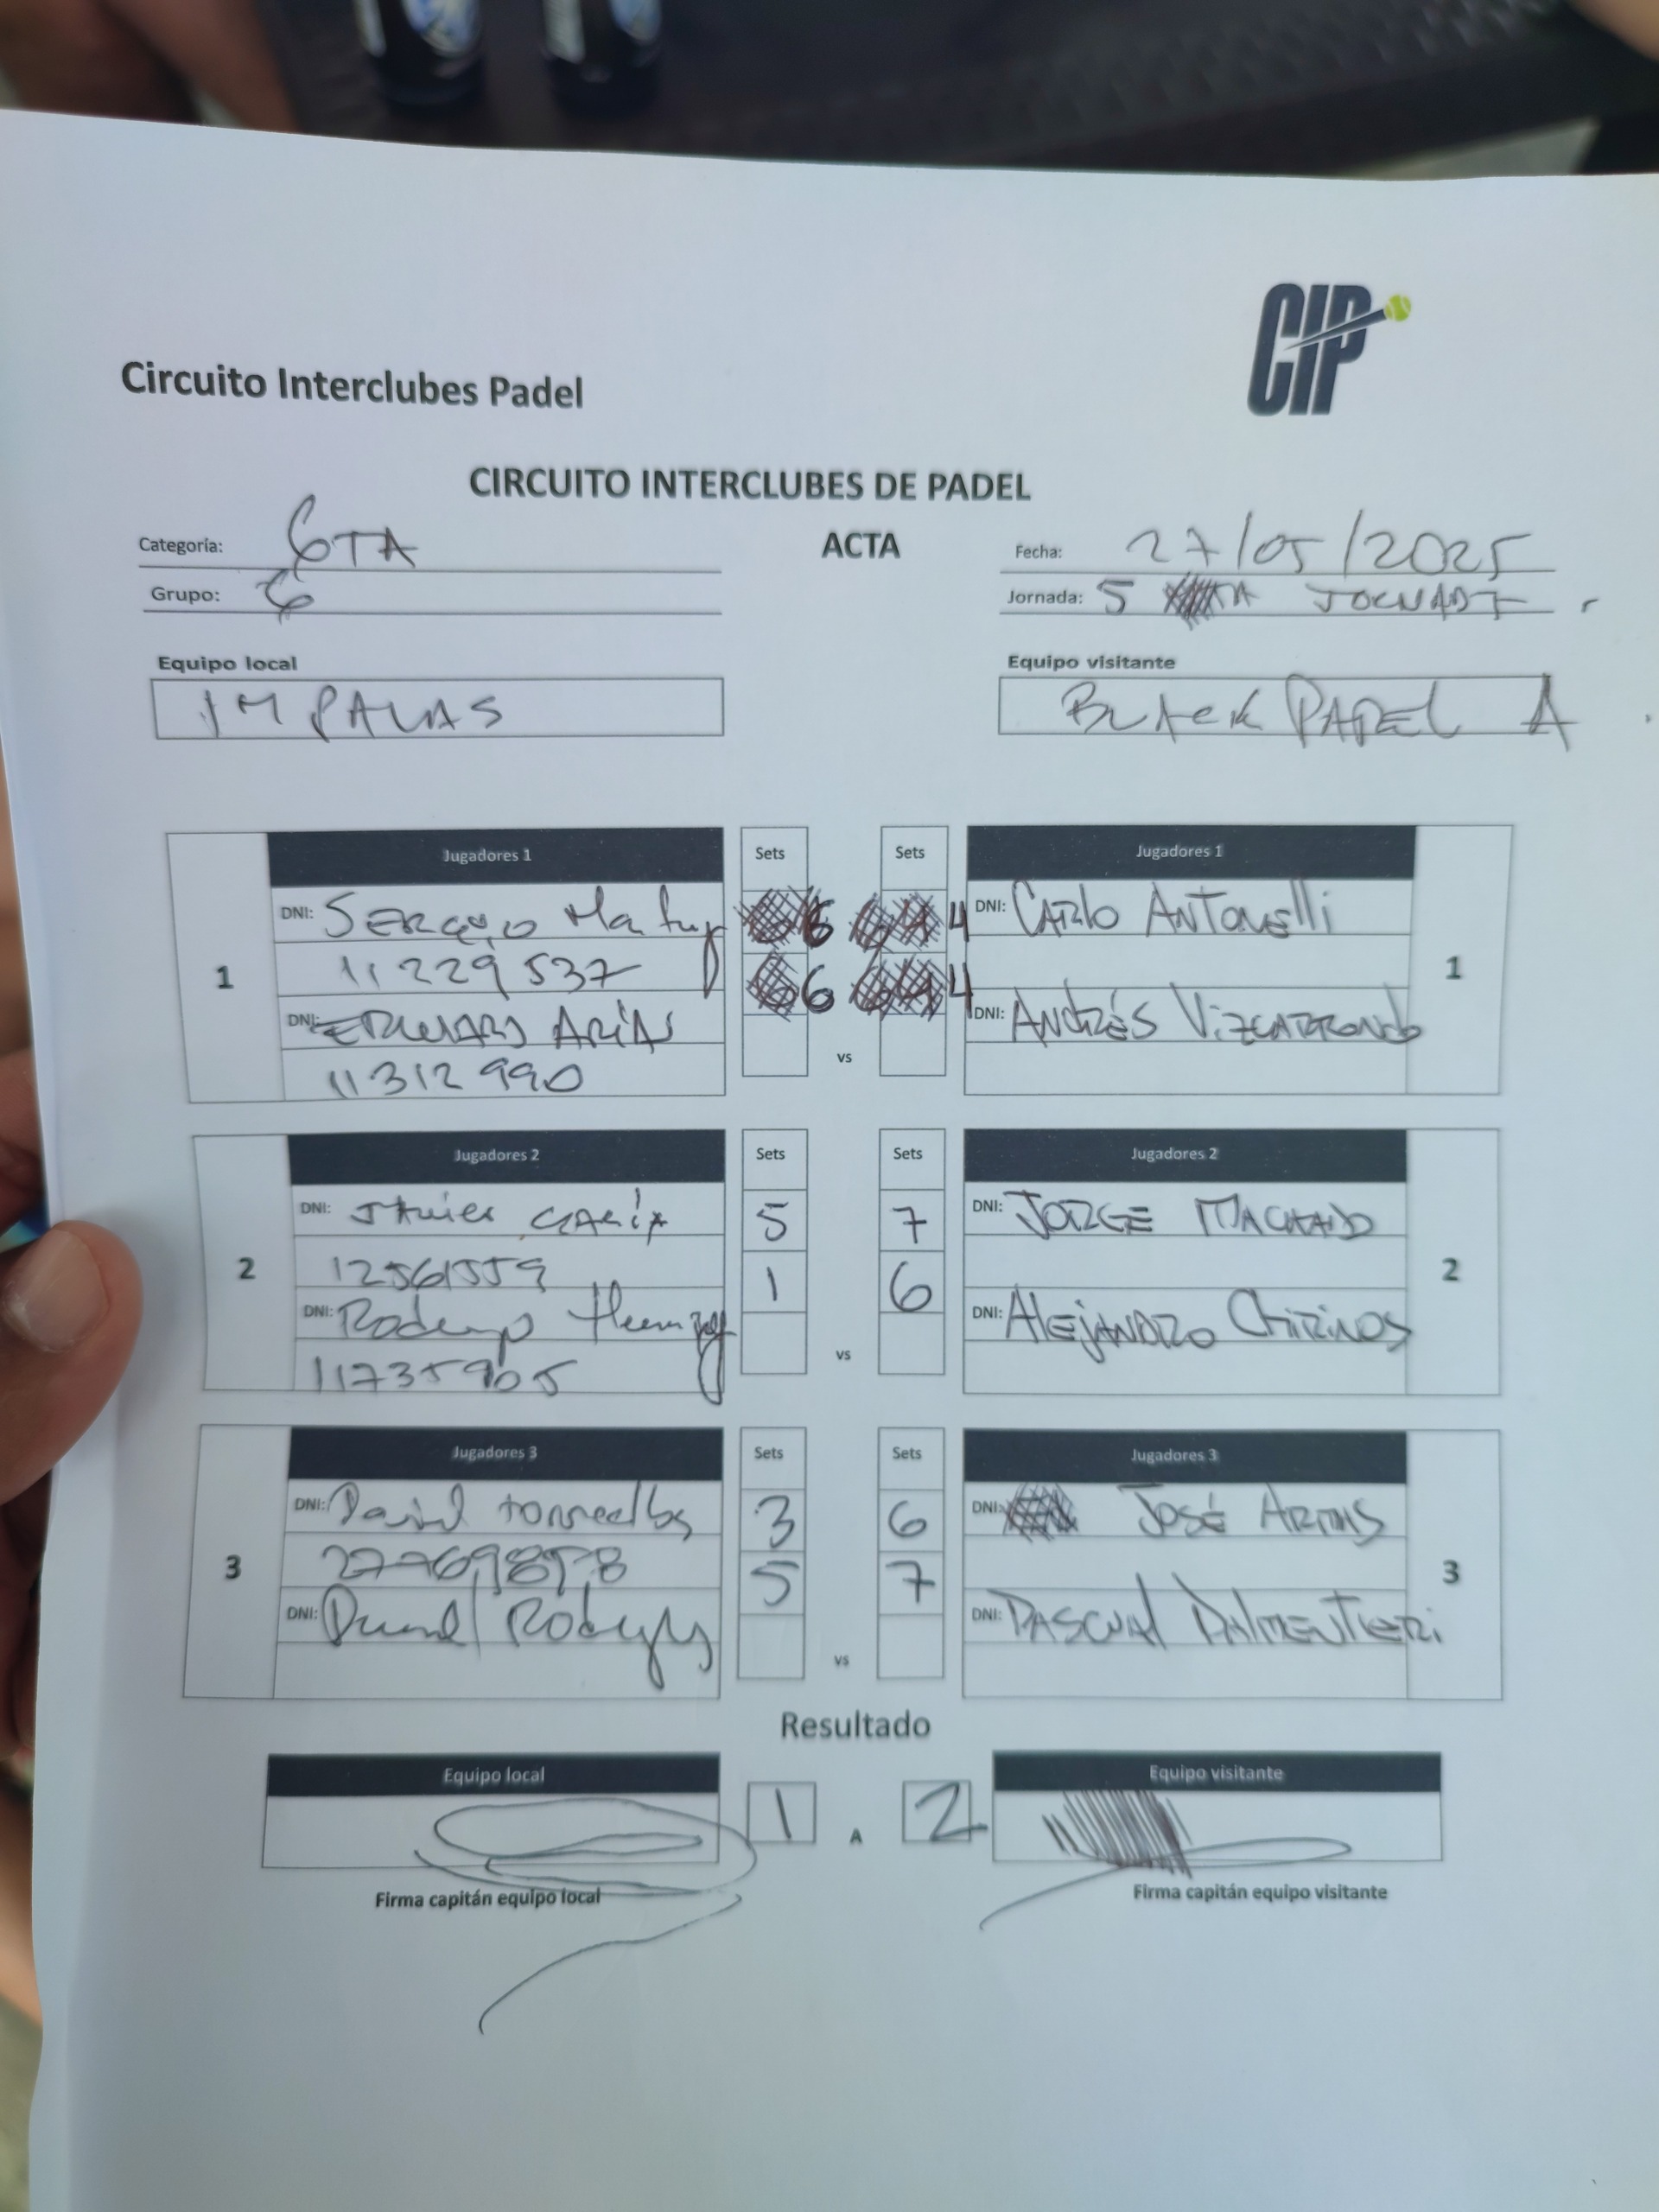 CIP
Circuito Interclubes Padel
CIRCUITO INTERCLUBES DE PADEL
ACTA
Categoría: 6TA
Fecha: 27/05/2025
Grupo: 6
Jornada: 5 TA
Equipo local
Equipo visitante
IMPALAS
BLACK PADEL A
Jugadores 1 Sets Sets Jugadores 1
1
DNI: SERGIO 6 4 DNI: CARLO ANTONELLI
11229537 6 4
DNI: EDWARD ARIAS DNI: ANDRÉS VIZCARRONDO
11312990
vs
1
Jugadores 2 Sets Sets Jugadores 2
2
DNI: JAVIER GARCIA 5 7 DNI: JORGE MACHADO
12561559 1 6
DNI: Rodrigo DNI: ALEJANDRO CHIRINOS
11735905
vs
2
Jugadores 3 Sets Sets Jugadores 3
3
DNI: David 3 6 DNI: JOSÉ
5 7
DNI: DNI: PASCUAL PALMENTIERI
vs
3
Resultado
Equipo local 1 A 2 Equipo visitante
Firma capitán equipo local
Firma capitán equipo visitante